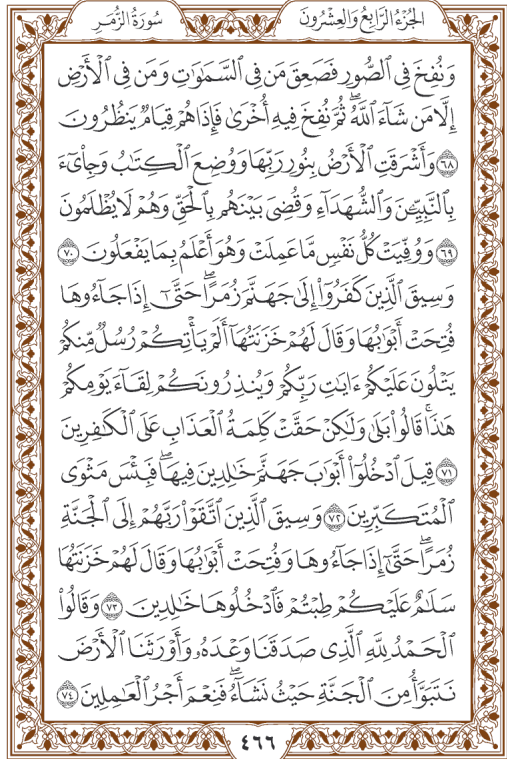 الجُزْءُ الرَّابِعُ وَالعِشْرُونَ
سُورَةُ الزُّمَرِ
وَنُفِخَ فِي ٱلصُّورِ فَصَعِقَ مَن فِي ٱلسَّمَٰوَٰتِ وَمَن فِي ٱلْأَرْضِ
إِلَّا مَن شَآءَ ٱللَّهُ ۖ ثُمَّ نُفِخَ فِيهِ أُخْرَىٰ فَإِذَا هُمْ قِيَامٌ يَنظُرُونَ
٦٨ وَأَشْرَقَتِ ٱلْأَرْضُ بِنُورِ رَبِّهَا وَوُضِعَ ٱلْكِتَٰبُ وَجِا۟يٓءَ
بِٱلنَّبِيِّـۧنَ وَٱلشُّهَدَآءِ وَقُضِيَ بَيْنَهُم بِٱلْحَقِّ وَهُمْ لَا يُظْلَمُونَ
٦٩ وَوُفِّيَتْ كُلُّ نَفْسٍ مَّا عَمِلَتْ وَهُوَ أَعْلَمُ بِمَا يَفْعَلُونَ ٧٠
وَسِيقَ ٱلَّذِينَ كَفَرُوٓا۟ إِلَىٰ جَهَنَّمَ زُمَرًا ۖ حَتَّىٰٓ إِذَا جَآءُوهَا
فُتِحَتْ أَبْوَٰبُهَا وَقَالَ لَهُمْ خَزَنَتُهَآ أَلَمْ يَأْتِكُمْ رُسُلٌ مِّنكُمْ
يَتْلُونَ عَلَيْكُمْ ءَايَٰتِ رَبِّكُمْ وَيُنذِرُونَكُمْ لِقَآءَ يَوْمِكُمْ
هَٰذَا ۚ قَالُوا۟ بَلَىٰ وَلَٰكِنْ حَقَّتْ كَلِمَةُ ٱلْعَذَابِ عَلَى ٱلْكَٰفِرِينَ
٧١ قِيلَ ٱدْخُلُوٓا۟ أَبْوَٰبَ جَهَنَّمَ خَٰلِدِينَ فِيهَا ۖ فَبِئْسَ مَثْوَى
ٱلْمُتَكَبِّرِينَ ٧٢ وَسِيقَ ٱلَّذِينَ ٱتَّقَوْا۟ رَبَّهُمْ إِلَى ٱلْجَنَّةِ
زُمَرًا ۖ حَتَّىٰٓ إِذَا جَآءُوهَا وَفُتِحَتْ أَبْوَٰبُهَا وَقَالَ لَهُمْ خَزَنَتُهَا
سَلَٰمٌ عَلَيْكُمْ طِبْتُمْ فَٱدْخُلُوهَا خَٰلِدِينَ ٧٣ وَقَالُوا۟
ٱلْحَمْدُ لِلَّهِ ٱلَّذِي صَدَقَنَا وَعْدَهُۥ وَأَوْرَثَنَا ٱلْأَرْضَ
نَتَبَوَّأُ مِنَ ٱلْجَنَّةِ حَيْثُ نَشَآءُ ۖ فَنِعْمَ أَجْرُ ٱلْعَٰمِلِينَ ٧٤
٤٦٦